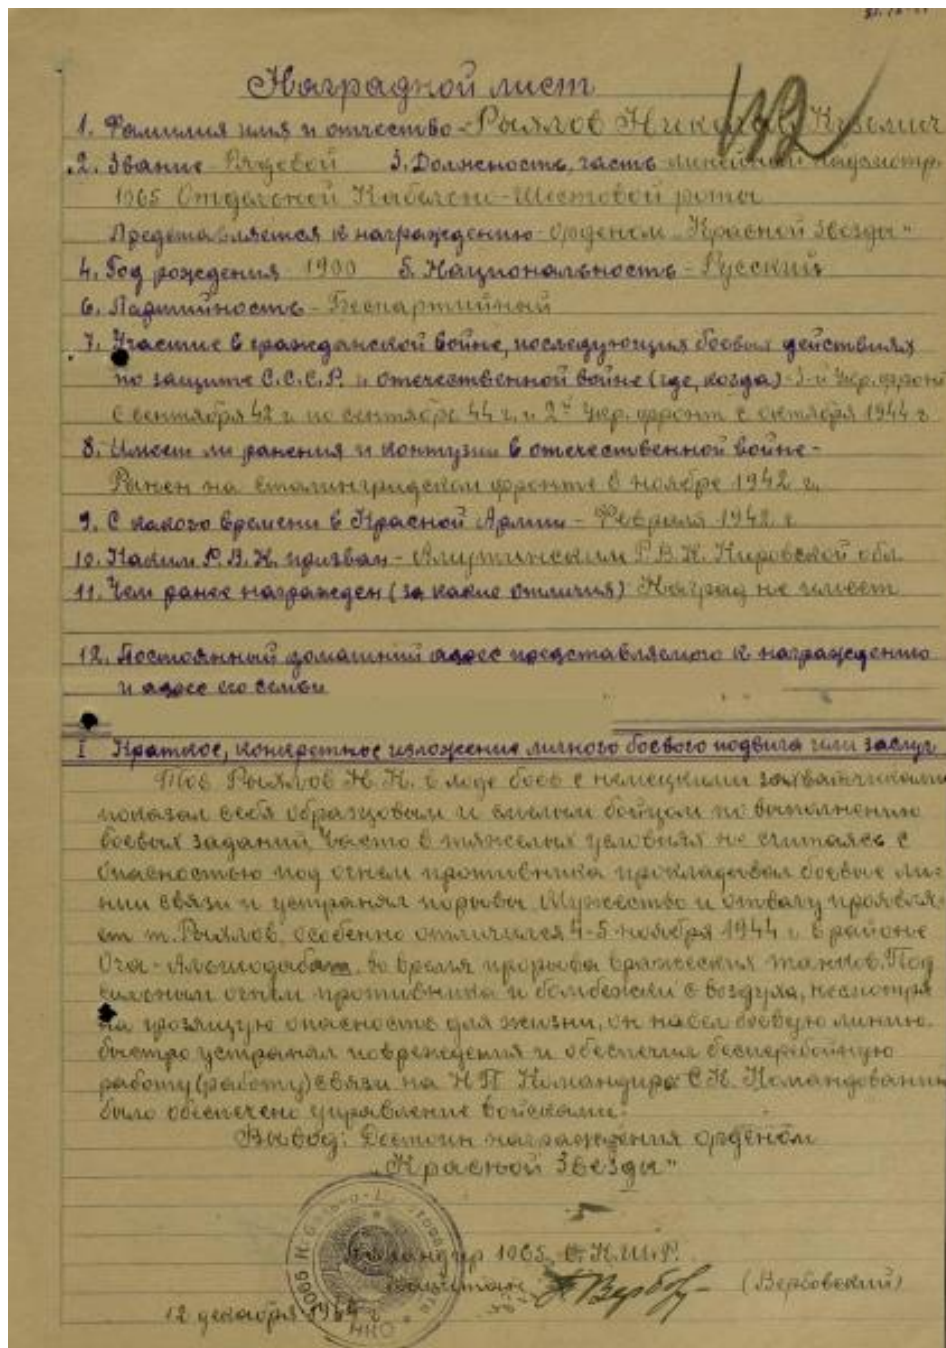 Наградной лист
1. Фамилия имя и отчество - Рыялов Николай Кузьмич
2. Звание Рядовой 3. Должность, часть линейный надсмотр.
1065 Отдельной Кабельно-Шестовой роты
Представляется к награждению Орденом „Красной Звезды"
4. Год рождения - 1900 5. Национальность - Русский
6. Партийность - Беспартийный
7. Участие в гражданской войне, последующих боевых действиях
по защите С.С.С.Р. и отечественной войне (где, когда) - 3-й Укр. фронт
с сентября 42 г. по сентябрь 44 г. и 2й Укр. фронт с октября 1944 г
8. Имеет ли ранения и контузии в отечественной войне -
Ранен на сталинградском фронте в ноябре 1942 г.
9. С какого времени в Красной Армии - Февраля 1942 г
10. Каким Р.В.К. призван - Р.В.К. Кировской обл.
11. Чем ранее награжден (за какие отличия) Наград не имеет
12. Постоянный домашний адрес представляемого к награждению
и адрес его семьи
I Краткое, конкретное изложение личного боевого подвига или заслуг
Тов Рыялов Н.К. в ходе боев с немецкими захватчиками
показал себя образцовым и смелым бойцом по выполнению
боевых заданий. Часто в тяжелых условиях не считаясь с
опасностью под огнем противника прокладывал боевые ли-
нии связи и устранял порывы. Мужество и отвагу проявля-
ет т. Рыялов, особенно отличился 4-5 ноября 1944 г. в районе
во время прорыва вражеских танков. Под
сильным огнем противника и бомбежки с воздуха, несмотря
на грозящую опасность для жизни, он навел боевую линию.
быстро устранял повреждения и обеспечил бесперебойную
работу (работу) связи на НП Командира С.К. Командованию
было обеспечено управление войсками.
Вывод: Достоин награждения орденом
„Красной Звезды"
Командир 1065 О.К.Ш.Р.
капитан (Вербовский)
12 декабря 1944 г